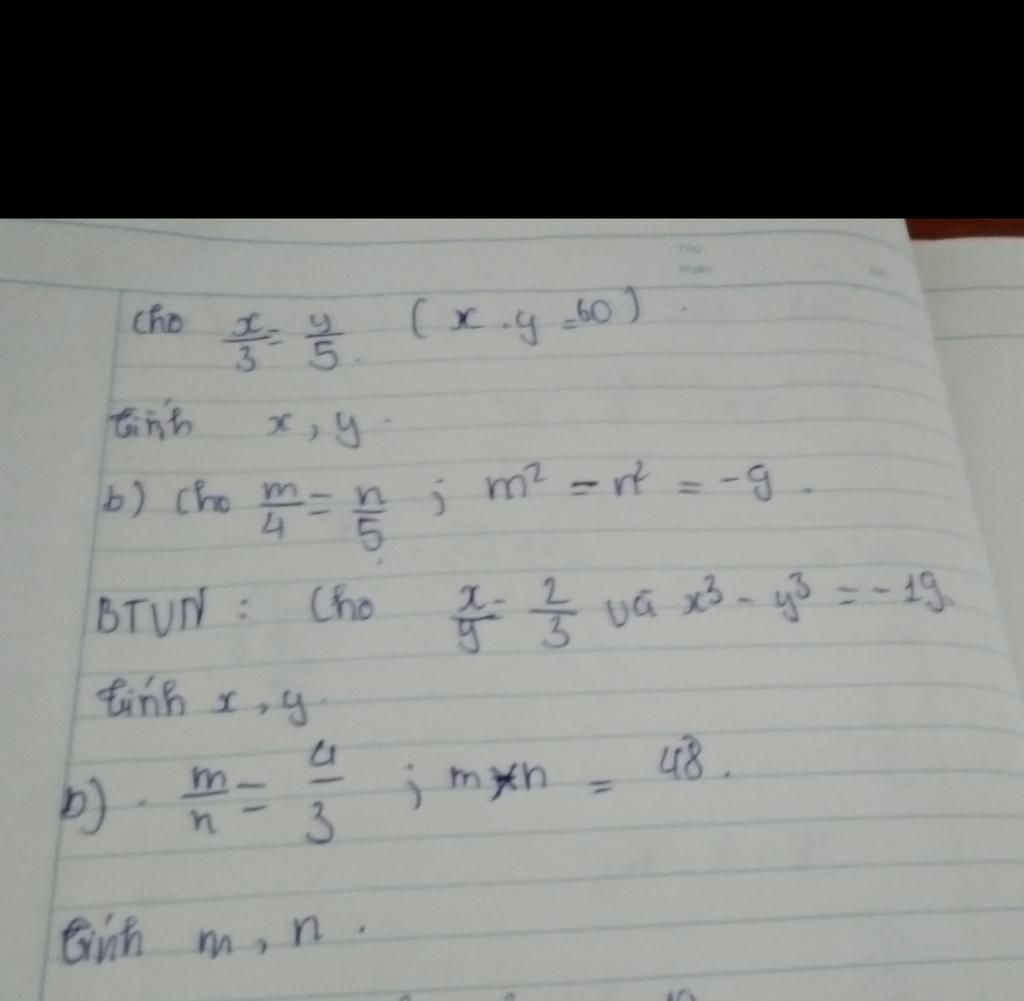 Cho x/3 = y/5. (x . y = 60).
tính x, y.
b) Cho m/4 = n/5 ; m² - n² = -9.
BTVN : Cho x/y = 2/3 và x³ - y³ = -19.
tính x, y.
b) . m/n = 4/3 ; m x n = 48.
tính m, n.